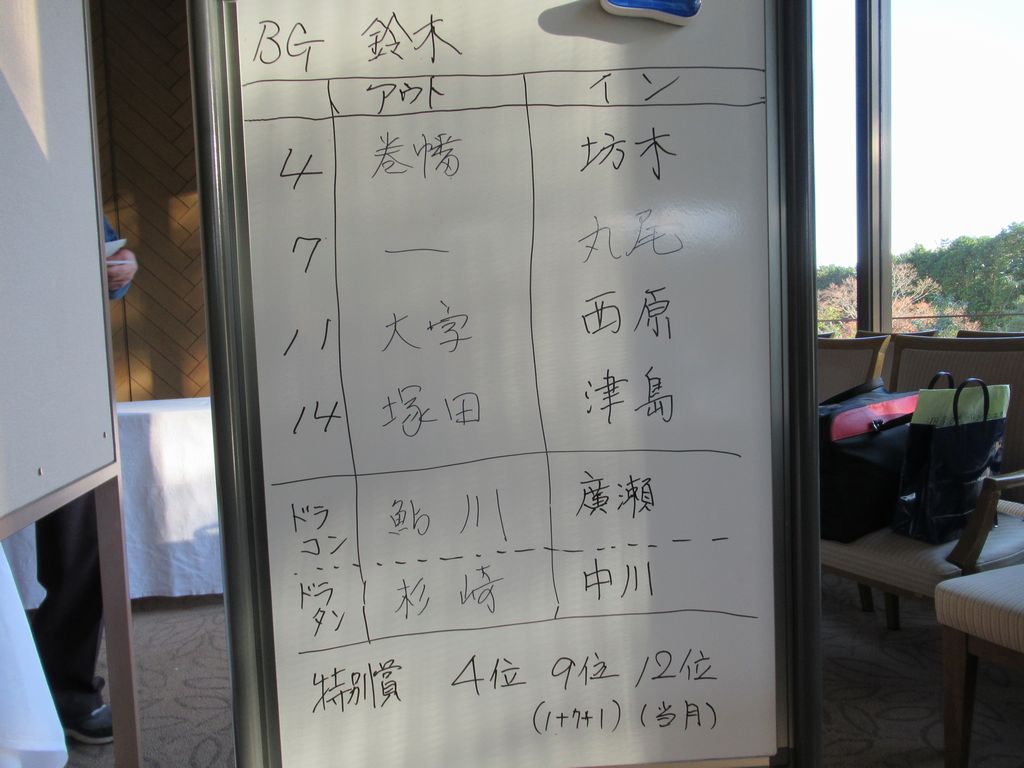 BG 鈴木
アウト イン
4 巻幡 坊木
7 — 丸尾
11 大字 西原
14 塚田 津島
ドラコン 鮎川 廣瀬
ドラタン 杉崎 中川
特別賞 4位 9位 12位
(1+7+1) (当月)